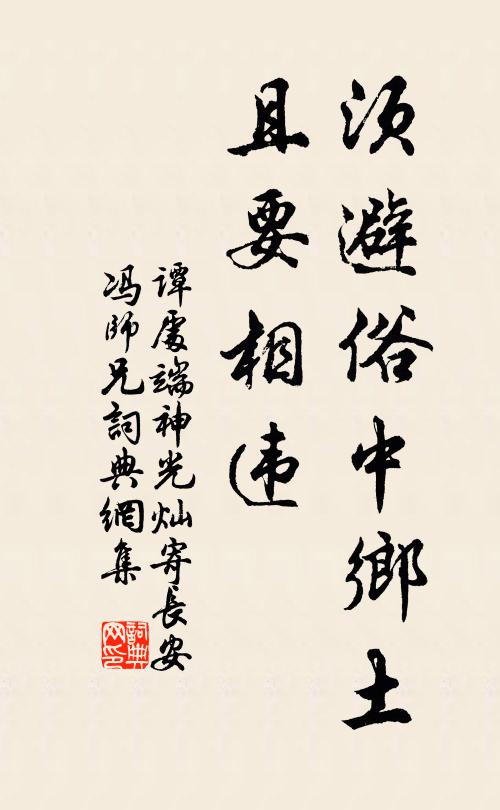 须避俗中鄉土
且要相违
谭處端神光灿寄長安
冯師兄詞典網集
詞典网印